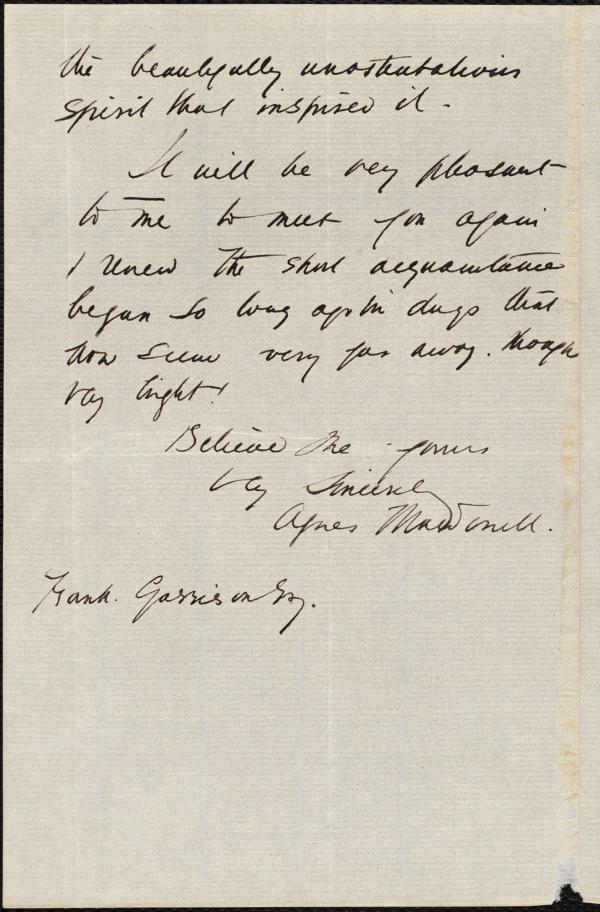 the beautifully unostentatious
spirit that inspired it.
It will be very pleasant
to me to meet you again
& renew the short acquaintance
begun so long ago in days that
now seem very far away. though
very bright!
Believe me yours
very sincerely
Agnes MacDonell.
Frank. Garrison Esq.